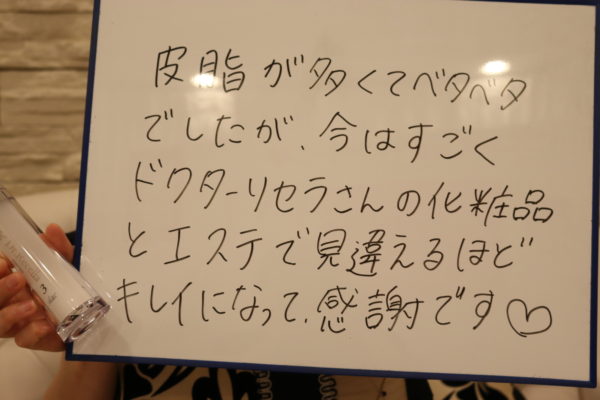 皮脂が多くてベタベタ
でしたが、今はすごく
ドクターリセラさんの化粧品
とエステで見違えるほど
キレイになって、感謝です♡
3